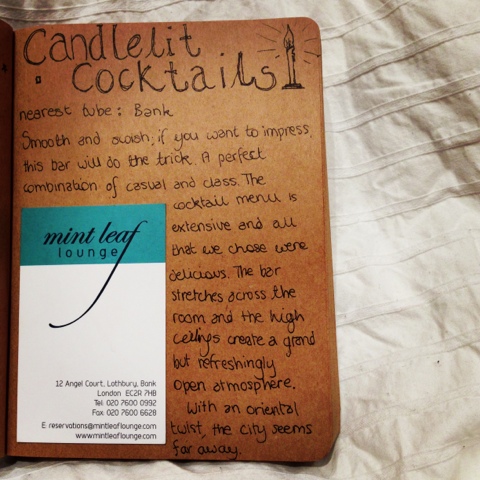 Candlelit
Cocktails
nearest tube: Bank
Smooth and swish, if you want to impress,
this bar will do the trick. A perfect
combination of casual and class. The
cocktail menu is
extensive and all
that we chose were
delicious. The bar
stretches across the
room and the high
ceilings create a grand
but refreshingly
open atmosphere.
With an oriental
twist, the city seems
far away.
mint leaf
lounge
12 Angel Court, Lothbury, Bank
London EC2R 7HB
Tel: 020 7600 0992
Fax: 020 7600 6628
E: reservations@mintleaflounge.com
www.mintleaflounge.com